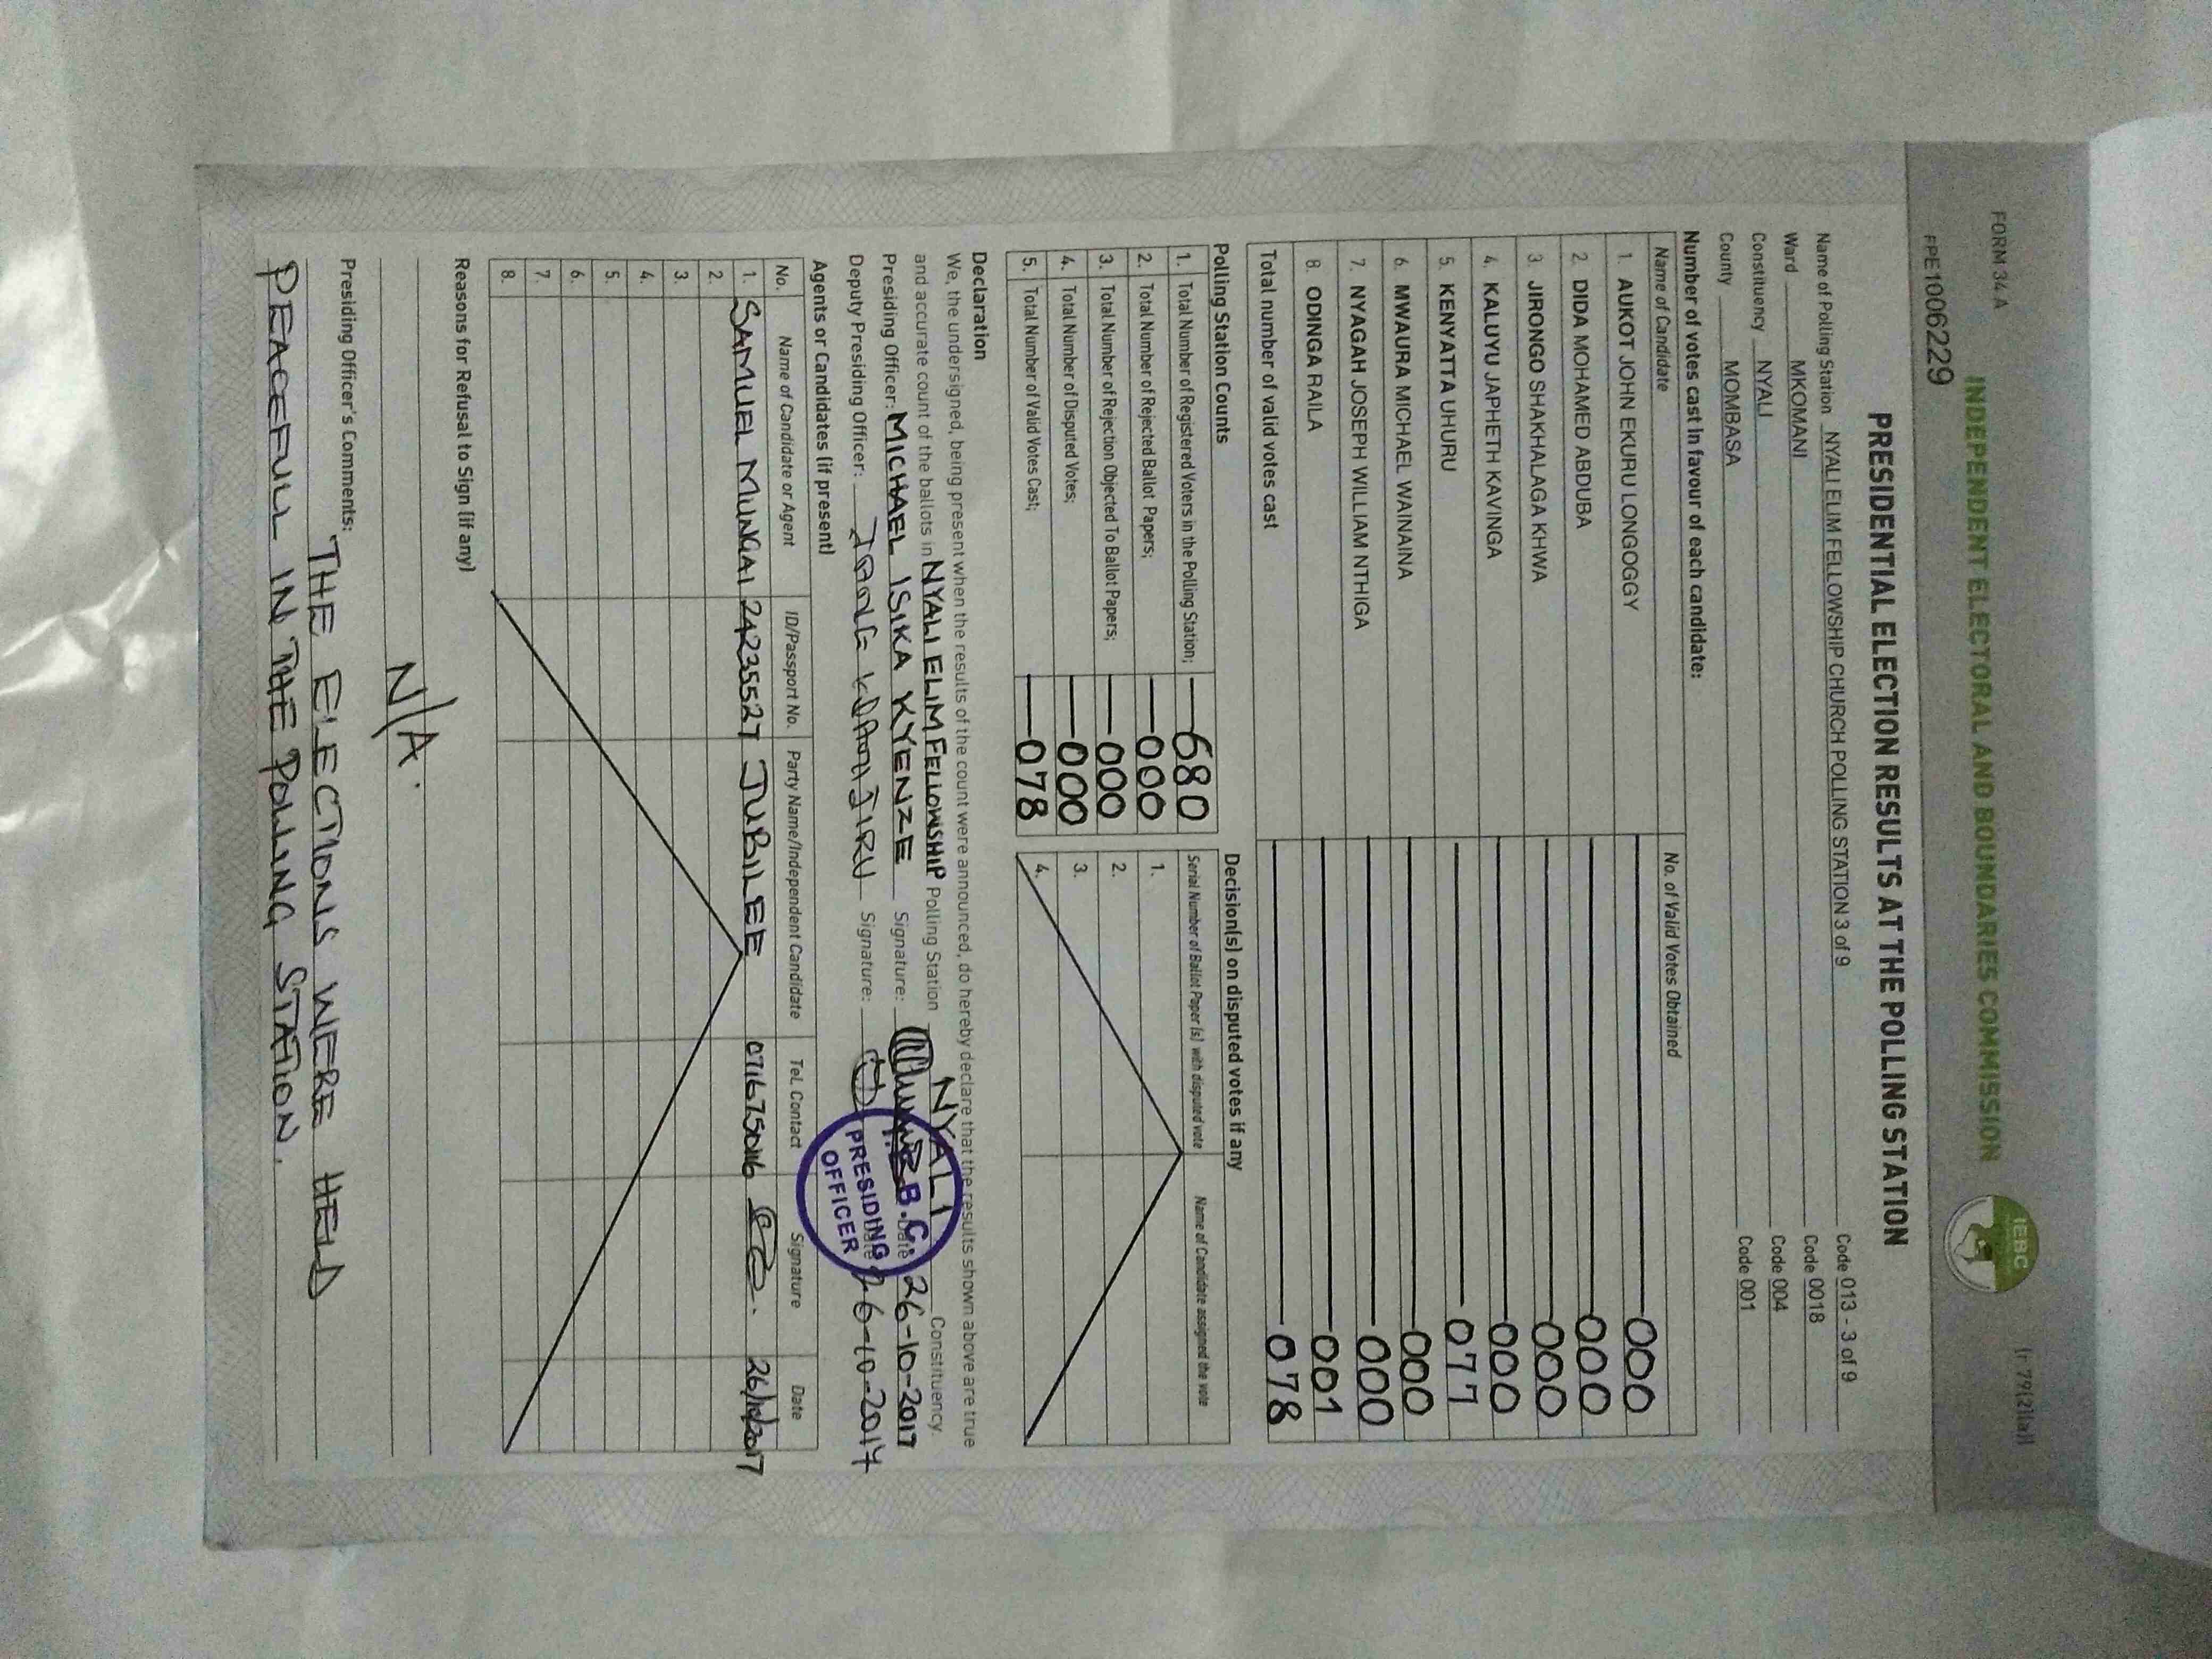 FORM 34 A
(r 79(2)(a))
INDEPENDENT ELECTORAL AND BOUNDARIES COMMISSION
IEBC
PPE1006229
PRESIDENTIAL ELECTION RESULTS AT THE POLLING STATION
Name of Polling Station NYALI ELIM FELLOWSHIP CHURCH POLLING STATION 3 of 9 Code 013 - 3 of 9
Ward MKOMANI Code 0018
Constituency NYALI Code 004
County MOMBASA Code 001
Number of votes cast in favour of each candidate:
Name of Candidate No. of Valid Votes Obtained
1. AUKOT JOHN EKURU LONGOGGY 000
2. DIDA MOHAMED ABDUBA 000
3. JIRONGO SHAKHALAGA KHWA 000
4. KALUYU JAPHETH KAVINGA 000
5. KENYATTA UHURU 077
6. MWAURA MICHAEL WAINAINA 000
7. NYAGAH JOSEPH WILLIAM NTHIGA 000
8. ODINGA RAILA 001
Total number of valid votes cast 078
Polling Station Counts
1. Total Number of Registered Voters in the Polling Station; 680
2. Total Number of Rejected Ballot Papers; 000
3. Total Number of Rejection Objected To Ballot Papers; 000
4. Total Number of Disputed Votes; 000
5. Total Number of Valid Votes Cast; 078
Decision(s) on disputed votes if any
Serial Number of Ballot Paper (s) with disputed vote Name of Candidate assigned the vote
1.
2.
3.
4.
Declaration
We, the undersigned, being present when the results of the count were announced, do hereby declare that the results shown above are true
and accurate count of the ballots in NYALI ELIM FELLOWSHIP Polling Station NYALI Constituency.
Presiding Officer: MICHAEL ISIKA KYENZE Signature: Date 26-10-2017
Deputy Presiding Officer: Signature: Date 26-10-2017
I.E.B.C.
PRESIDING
OFFICER
Agents or Candidates (if present)
No. Name of Candidate or Agent ID/Passport No. Party Name/Independent Candidate Tel. Contact Signature Date
1. SAMUEL MUNGAI 24235527 JUBILEE 26/10/2017
2.
3.
4.
5.
6.
7.
8.
Reasons for Refusal to Sign (if any)
N/A.
Presiding Officer's Comments:
THE ELECTIONS WERE HELD
PEACEFULL IN THE POLLING STATION.